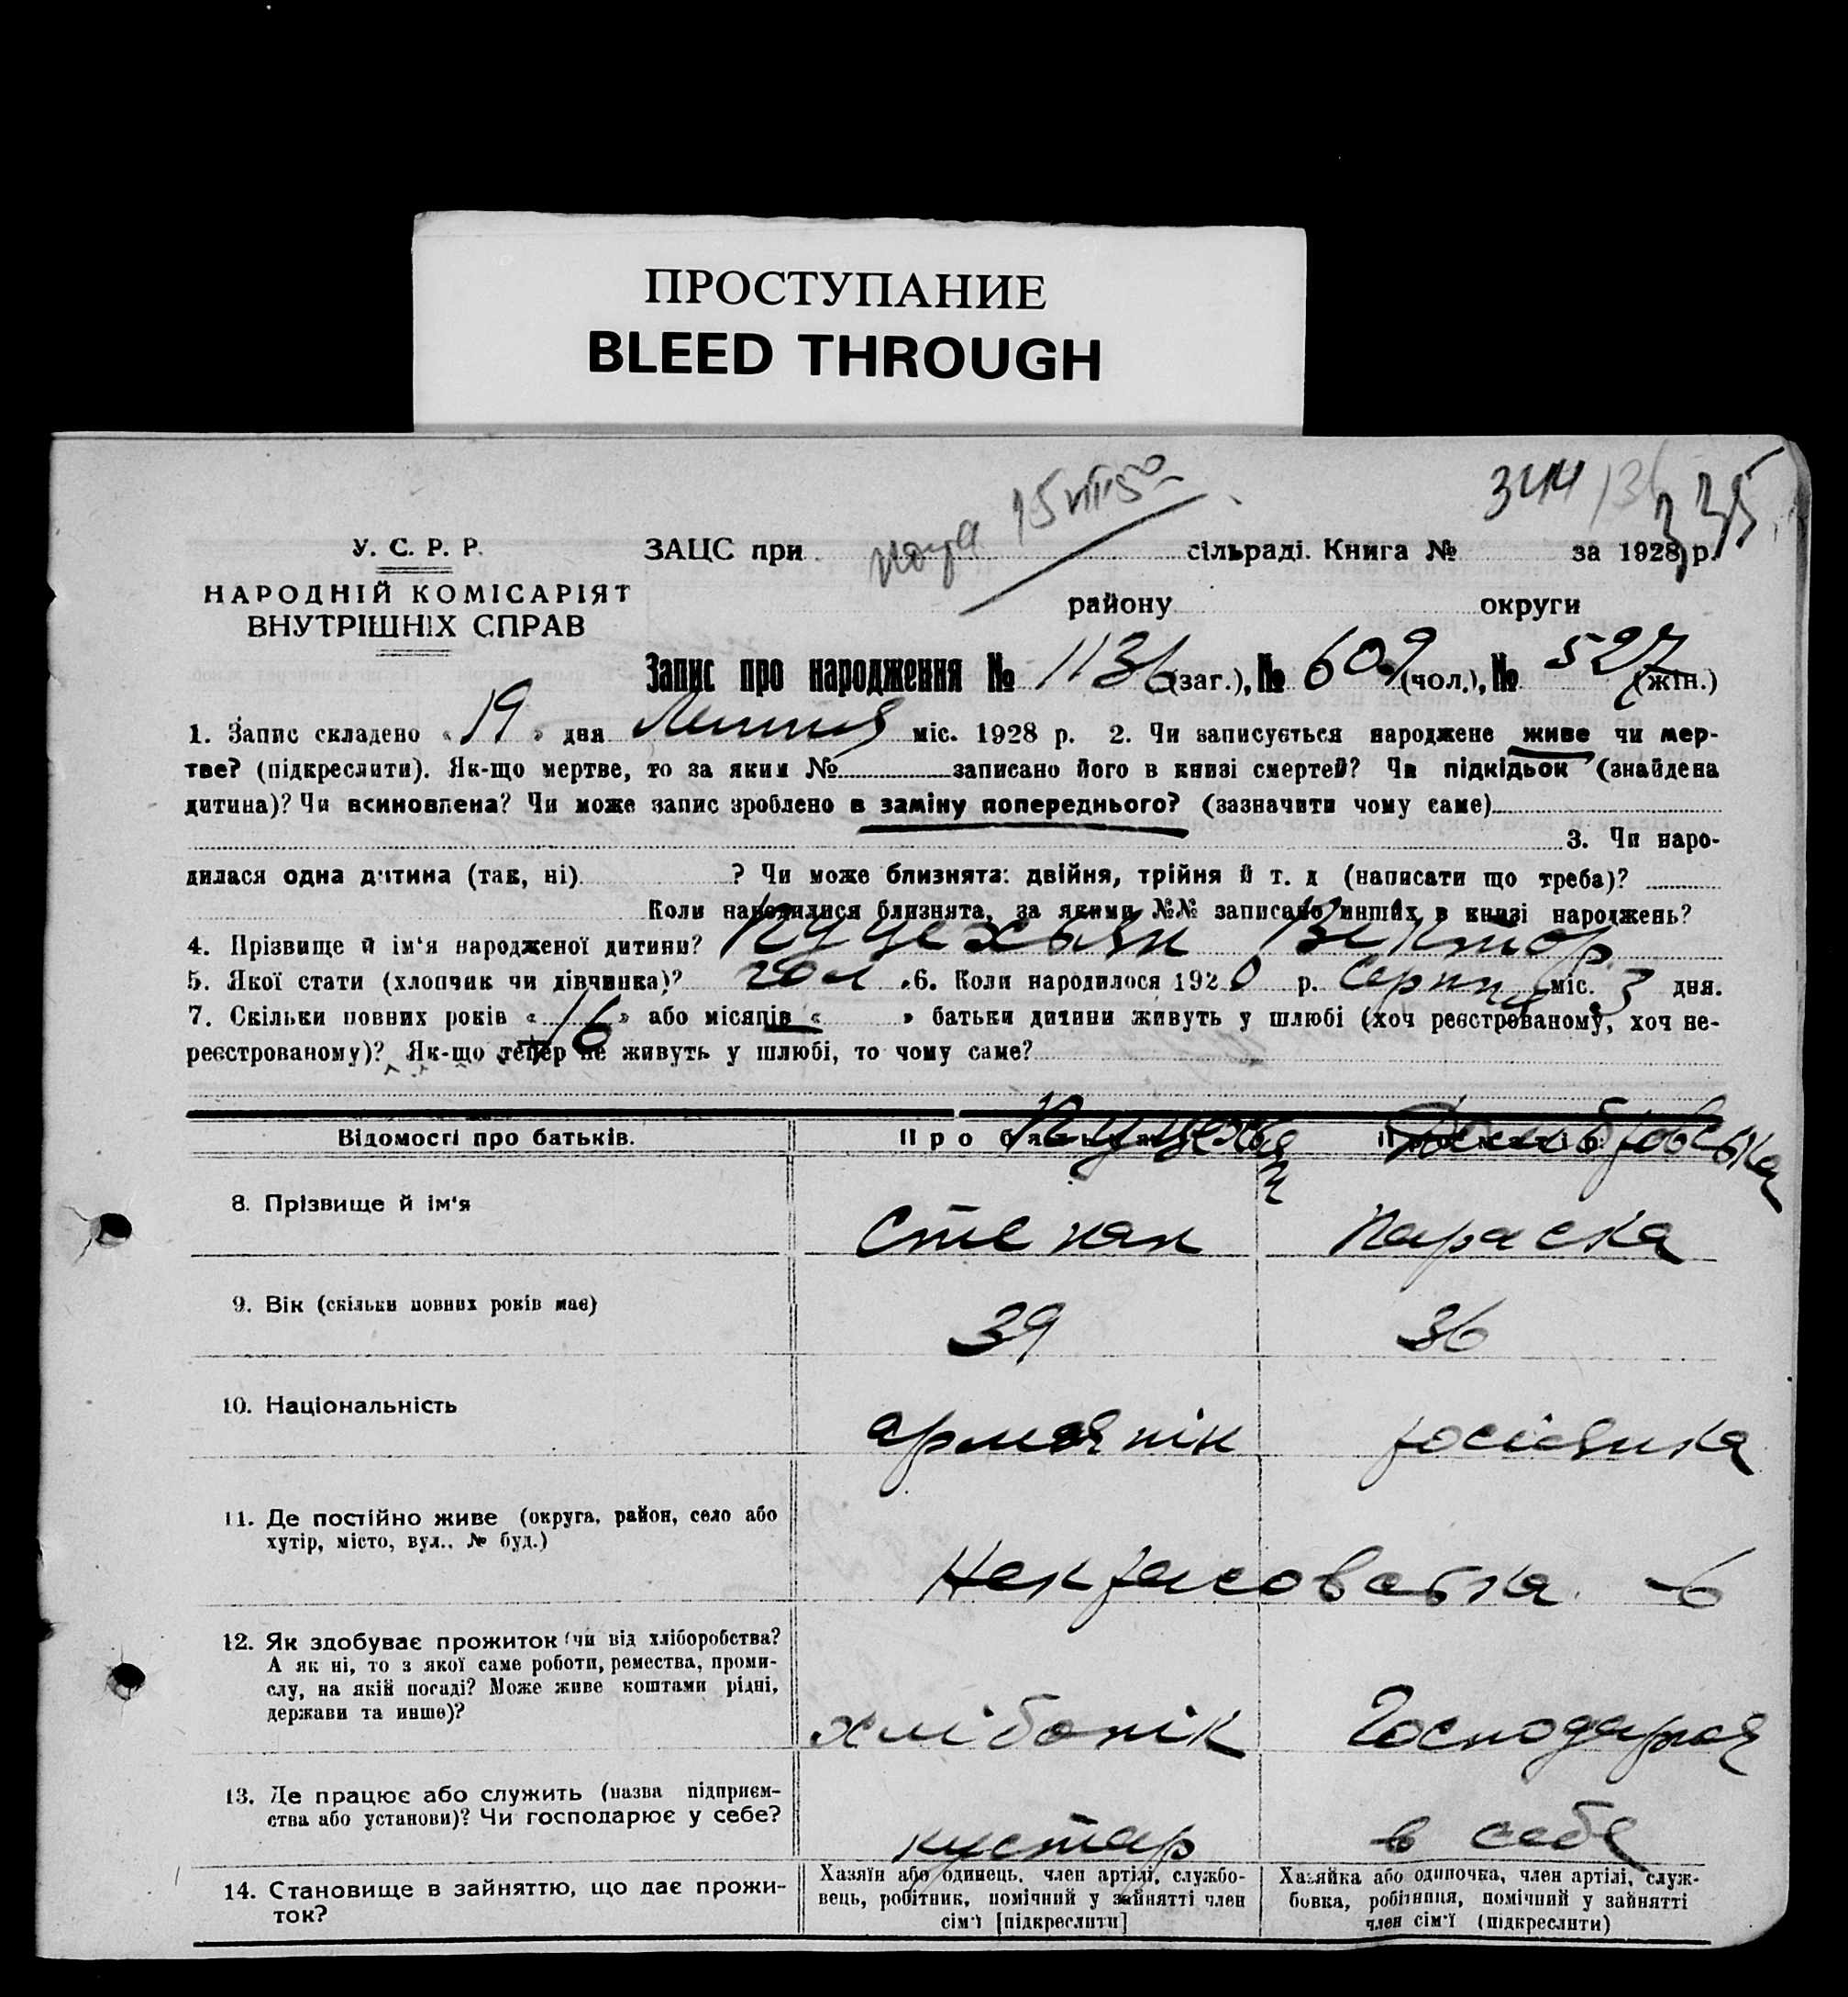 ПРОСТУПАНИЕ
BLEED THROUGH
344 335
15 VIII 50
У. С. Р. Р.
НАРОДНІЙ КОМІСАРІЯТ
ВНУТРІШНІХ СПРАВ
ЗАЦС при сільраді. Книга № за 1928 р.
району округи
Запис про народження № 1136 (заг.), № 609 (чол.), № 527 (жін.)
1. Запис складено « 19 » дня Липня міс. 1928 р. 2. Чи записується народжене живе чи мер-
тве? (підкреслити). Як-що мертве, то за яким № записано його в книзі смертей? Чи підкідьок (знайдена
дитина)? Чи всиновлена? Чи може запис зроблено в заміну попереднього? (зазначити чому саме)
3. Чи наро-
дилася одна дитина (так, ні) ? Чи може близнята: двійня, трійня й т. д (написати що треба)?
Коли народилися близнята, за якими №№ записано инших в книзі народжень?
4. Прізвище й ім'я народженої дитини? Віктор
5. Якої стати (хлопчик чи дівчинка)? чол. 6. Коли народилося 1920 р. Серпня міс. 3 дня.
7. Скільки повних років « 16 » або місяців « » батьки дитини живуть у шлюбі (хоч реєстрованому, хоч не-
реєстрованому)? Як-що тепер не живуть у шлюбі, то чому саме?
Відомості про батьків. Про батька Про матір
Домбровська
8. Прізвище й ім'я Степан Параска
9. Вік (скільки повних років має) 39 36
10. Національність армянін росіянка
11. Де постійно живе (округа, район, село або
хутір, місто, вул., № буд.)
Некрасовська 6
12. Як здобуває прожиток (чи від хліборобства?
А як ні, то з якої саме роботи, ремества, проми-
слу, на якій посаді? Може живе коштами рідні,
держави та инше)?
хлібопік Господарка
13. Де працює або служить (назва підприєм-
ства або установи)? Чи господарює у себе?
кустар в себе
14. Становище в зайняттю, що дає прожи-
ток?
Хазяїн або одинець, член артілі, службо-
вець, робітник, помічний у зайнятті член
сім'ї [підкреслити]
Хазяйка або одиночка, член артілі, служ-
бовка, робітниця, помічний у зайнятті
член сім'ї (підкреслити)